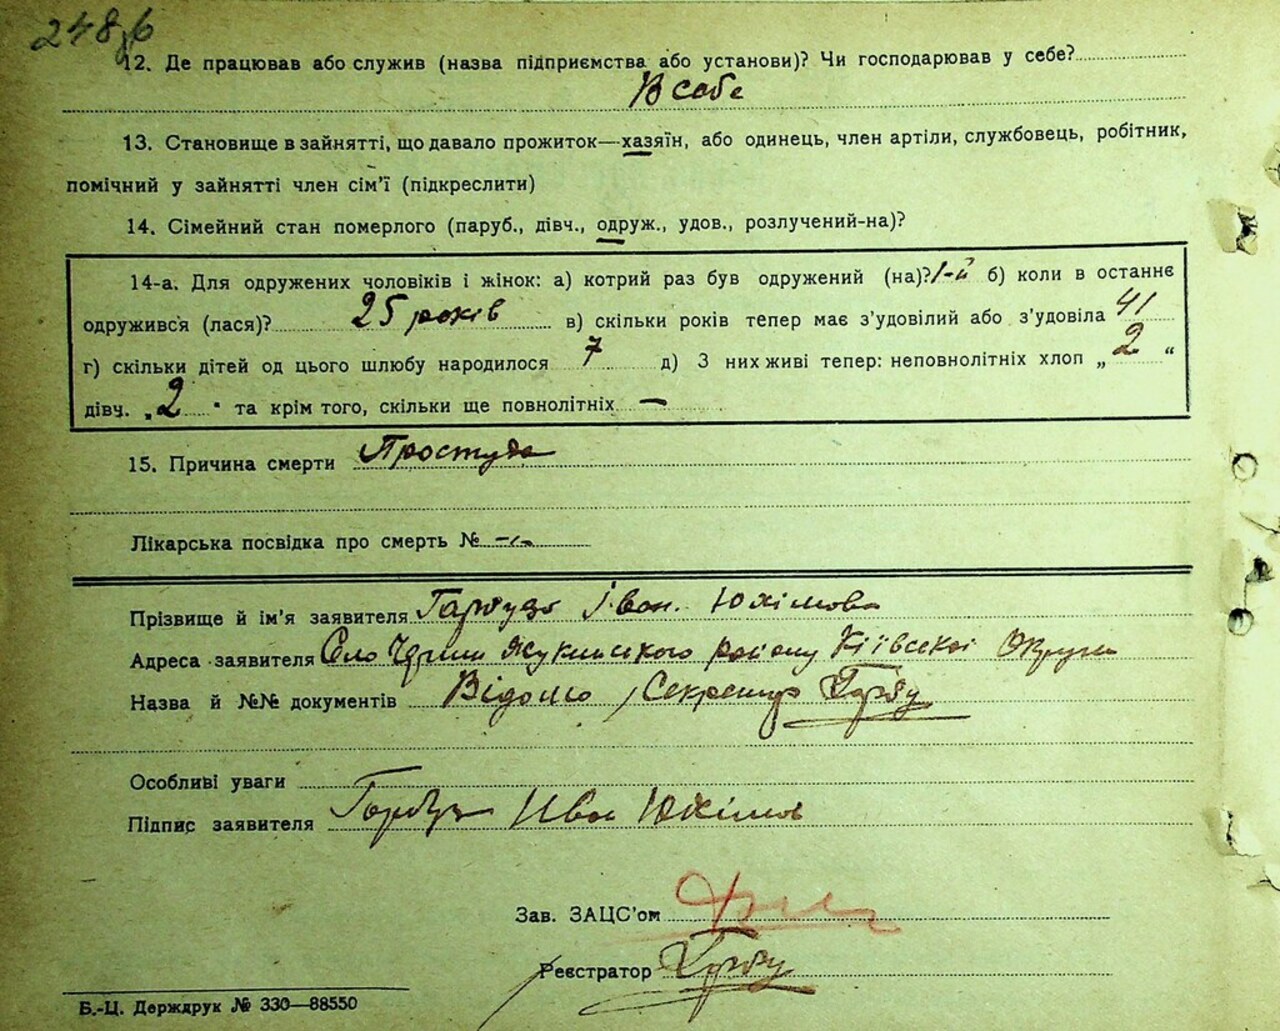 248
12. Де працював або служив (назва підприємства або установи)? Чи господарював у себе?
В себе
13. Становище в зайнятті, що давало прожиток—хазяїн, або одинець, член артіли, службовець, робітник,
помічний у зайнятті член сім'ї (підкреслити)
14. Сімейний стан померлого (паруб., дівч., одруж., удов., розлучений-на)?
14-а. Для одружених чоловіків і жінок: а) котрий раз був одружений (на)? 1-й б) коли в останнє
одружився (лася)? 25 років в) скільки років тепер має з'удовілий або з'удовіла 41
г) скільки дітей од цього шлюбу народилося 7 д) З них живі тепер: неповнолітніх хлоп „ 2 “
дівч. „ 2 " та крім того, скільки ще повнолітніх —
15. Причина смерти Простуда
Лікарська посвідка про смерть № —
Прізвище й ім'я заявителя Гарбуз Іван Юхімов
Адреса заявителя Село Жукинського району Київської Округи
Назва й №№ документів Відомо Секретар Гарбуз
Особливі уваги
Підпис заявителя Гарбуз Иван Юхімов
Зав. ЗАЦС'ом
Реєстратор Гарбуз
Б.-Ц. Держдрук № 330—88550